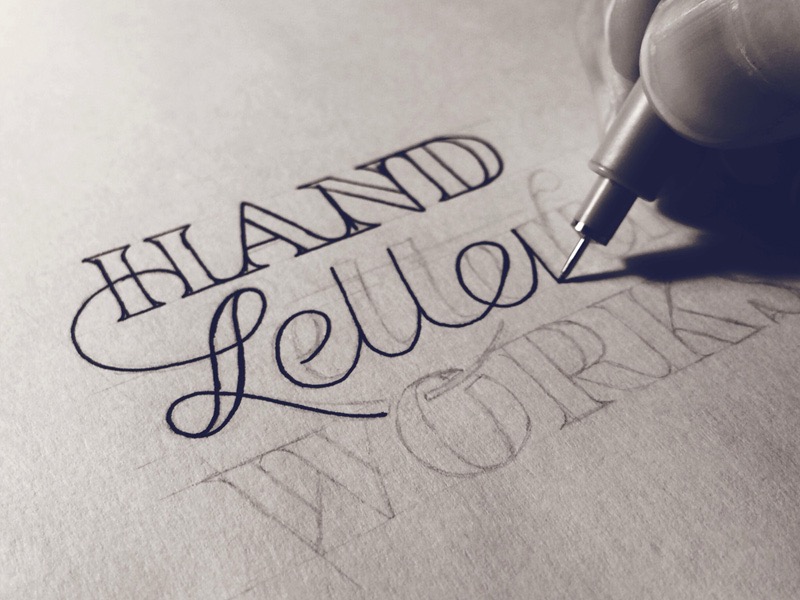 HAND
Letter
WORKS